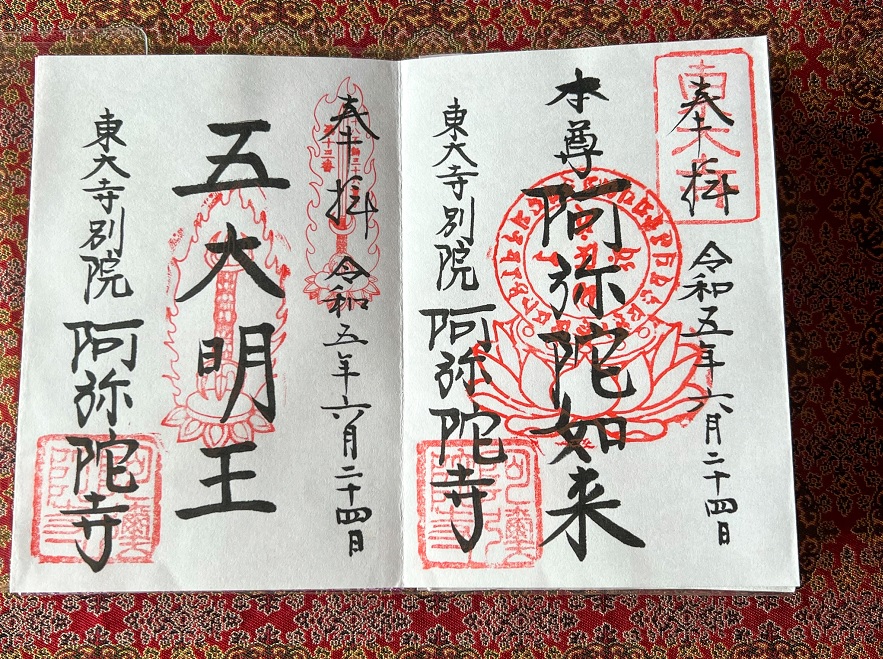 奉拝
令和五年六月二十四日
本尊
阿弥陀如来
東大寺別院
阿弥陀寺
東大寺
奉拝
令和五年六月二十四日
五大明王
東大寺別院
阿弥陀寺